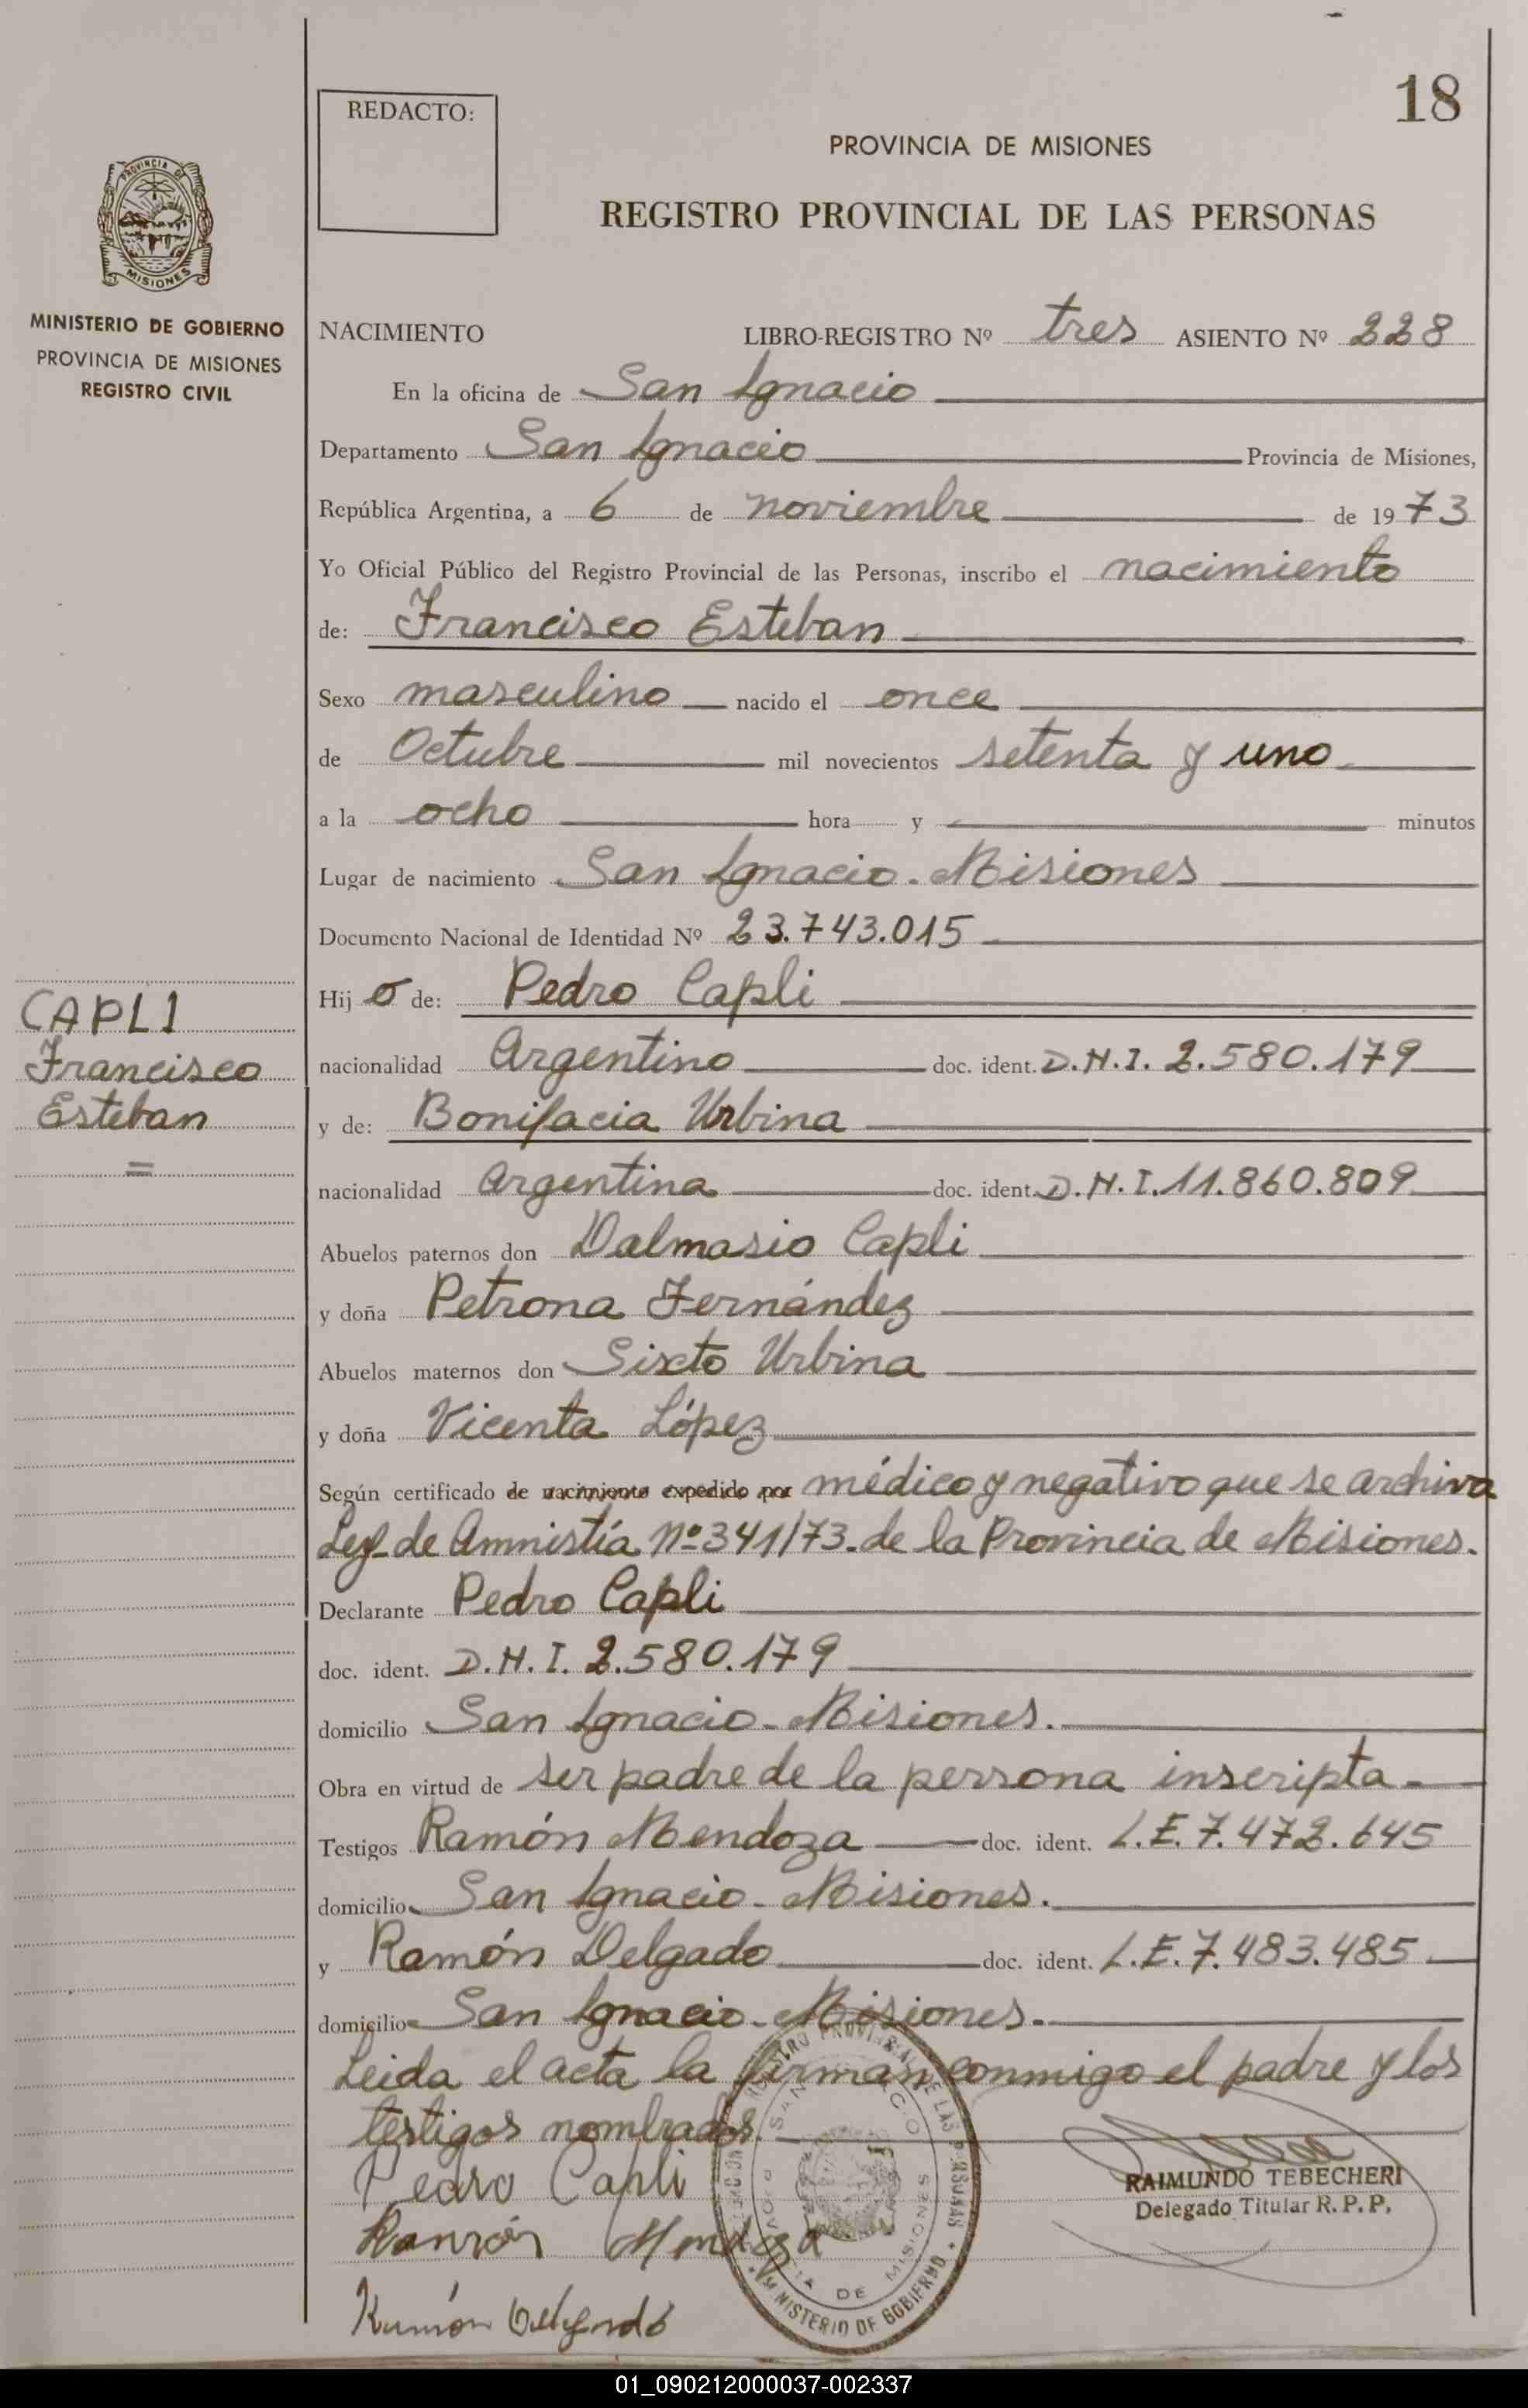 18
REDACTO:
PROVINCIA DE MISIONES
REGISTRO PROVINCIAL DE LAS PERSONAS
PROVINCIA DE
MISIONES
MINISTERIO DE GOBIERNO
PROVINCIA DE MISIONES
REGISTRO CIVIL
NACIMIENTO LIBRO-REGISTRO Nº tres ASIENTO Nº 228
En la oficina de San Ignacio
Departamento San Ignacio Provincia de Misiones,
República Argentina, a 6 de noviembre de 1973
Yo Oficial Público del Registro Provincial de las Personas, inscribo el nacimiento
de: Francisco Esteban
Sexo masculino nacido el once
de Octubre mil novecientos setenta y uno
a la ocho hora y minutos
Lugar de nacimiento San Ignacio - Misiones
Documento Nacional de Identidad Nº 23.743.015
Hijo de: Pedro Capli
CAPLI
Francisco
Esteban
nacionalidad Argentino doc. ident. D.N.I. 2.580.179
y de: Bonifacia Urbina
nacionalidad Argentina doc. ident. D.N.I. 11.860.809
Abuelos paternos don Dalmasio Capli
y doña Petrona Fernández
Abuelos maternos don Sixto Urbina
y doña Vicenta López
Según certificado de nacimiento expedido por médico y negativo que se archiva
Ley de Amnistía Nº 341/73. de la Provincia de Misiones.
Declarante Pedro Capli
doc. ident. D.N.I. 2.580.179
domicilio San Ignacio - Misiones.
Obra en virtud de ser padre de la persona inscripta -
Testigos Ramón Mendoza doc. ident. L.E. 7.472.645
domicilio San Ignacio - Misiones.
y Ramón Delgado doc. ident. L.E. 7.483.485
domicilio San Ignacio - Misiones.
Leida el acta la firman conmigo el padre y los
testigos nombrados.
Pedro Capli
Ramón Mendoza
Ramón Delgado
RAIMUNDO TEBECHERI
Delegado Titular R. P. P.
MINISTERIO DE GOBIERNO
01_090212000037-002337